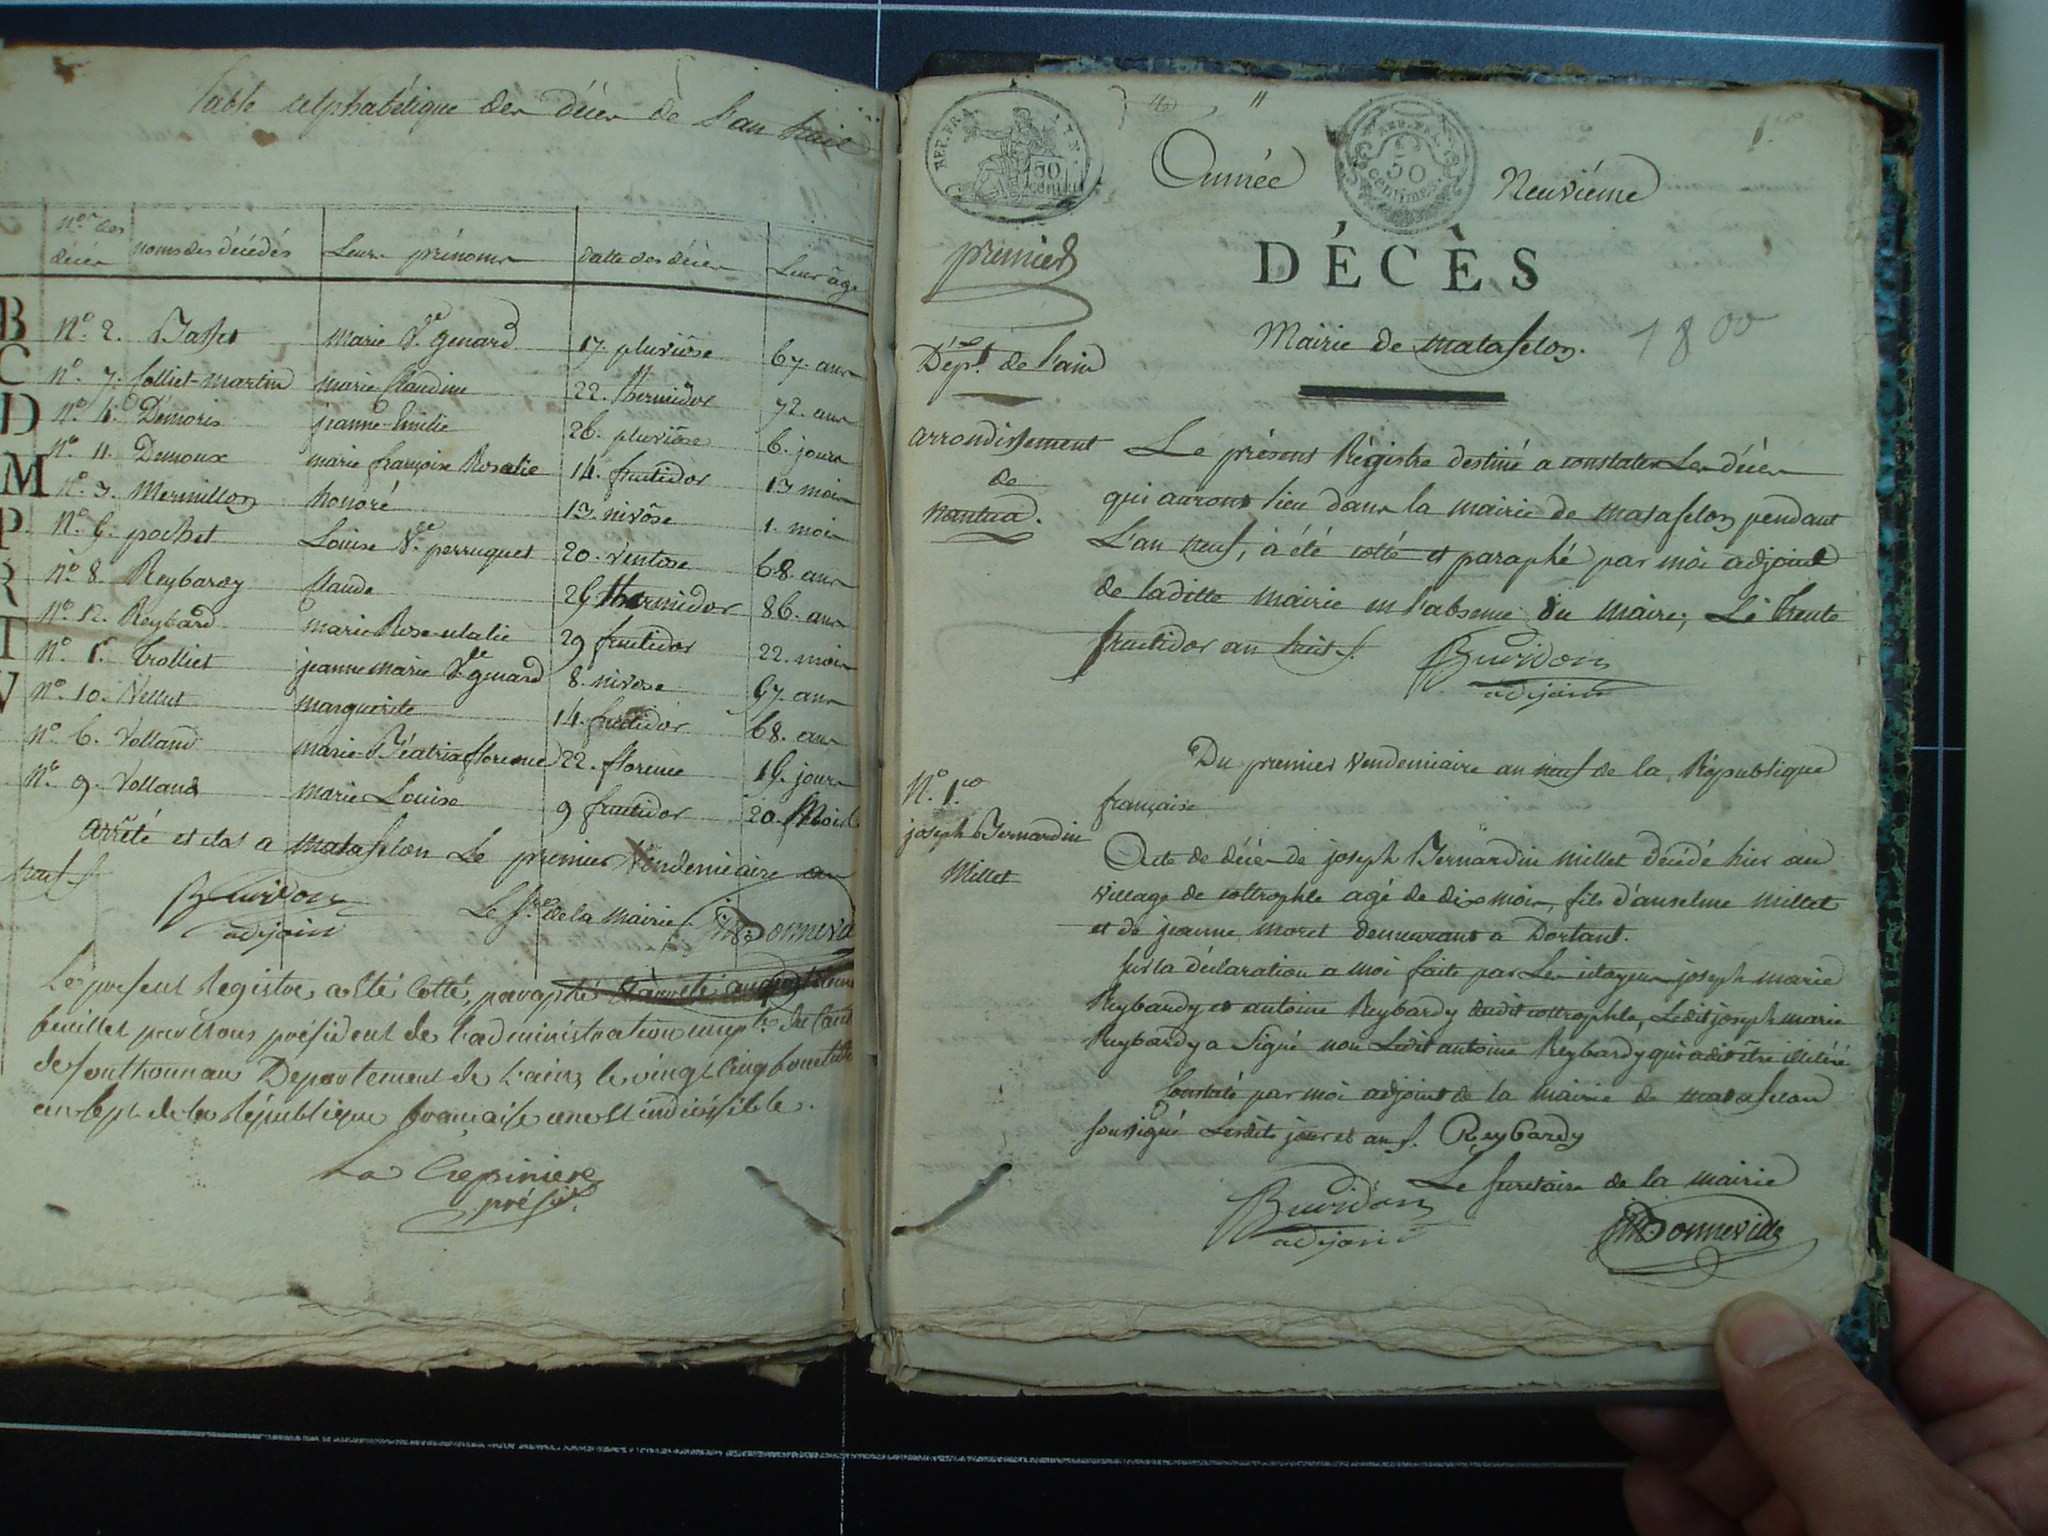 Table alphabétique des décès de l'an huit
Nos des décès noms des décédés Leurs prénoms datte des décès Leur âge
B No. 2. Baffet marie Ve genard 17. pluviôse 67. ans
C No. 7. Colliet-martin marie Claudine 22. thermidor 72. ans
D No. 4. Démoris jeanne Emilie 26. pluviôse 6. jours
No. 11. Demoux marie françoise Rosalie 14. fructidor 13 mois
M No. 3. Mermillon honoré 13. nivôse 1. mois
P No. 5. pochet Louise Ve. perruquet 20. ventose 68. ans
R No. 8. Reybardy Claude 25 thermidor 86. ans
No. 12. Reybard marie Rose 29 fructidor 22. mois
T No. 1er. Trolliet jeanne marie Ve genard 8. nivose 57. ans
V No. 10. Vellut marguerite 14. fructidor 68. ans
No. 6. Volland marie Béatrix florence 22. 15. jours
No. 9. Volland marie Louise 9 fructidor 20. Mois
arrêté et clos a matafelon Le premier Vendemiaire an
neuf
Buvidon
adjoint
Le Sre. de la mairie
Bonneville
Le present Registre a été Cotté, paraphé
feuillet par nous président de l'administration du Cant
de sonthonnax Departement de l'ain, le vingt Cinq fructidor
an Sept de la République française une et indivisible.
La Crepiniere
présid.
REP. FRA.
50
centim.
REP. FRA.
50
centimes
1er
Année Neuvième
premier
DÉCÈS
Mairie de matafelon. 1800
Dépt. de l'ain
arrondissement
de
nantua.
Le présent Régistre destiné a constater Les décès
qui auront lieu dans la mairie de matafelon pendant
L'an neuf, à été cotté et paraphé par moi adjoint
de laditte mairie en l'absence du maire; Le trente
fructidor an huit.
Buvidon
adjoint
Du premier Vendemiaire an neuf de la République
française
No. 1er
joseph Bernardin
Millet
Acte de décès de joseph Bernardin millet décédé hier au
village de cottrophle agé de dix mois, fils d'anselme millet
et de jeanne moret demeurant a Dortant.
Sur la déclaration a moi faite par Les citoyens joseph marie
Reybardy et antoine Reybardy dudit cottrophle, Ledit joseph marie
Reybardy a Signé non Ledit antoine Reybardy qui a dit être illitéré
Constaté par moi adjoint de la mairie de matafelon
soussigné Lesdits jour et an. Reybardy
Le secretaire de la mairie
Buvidon
adjoint
Bonneville